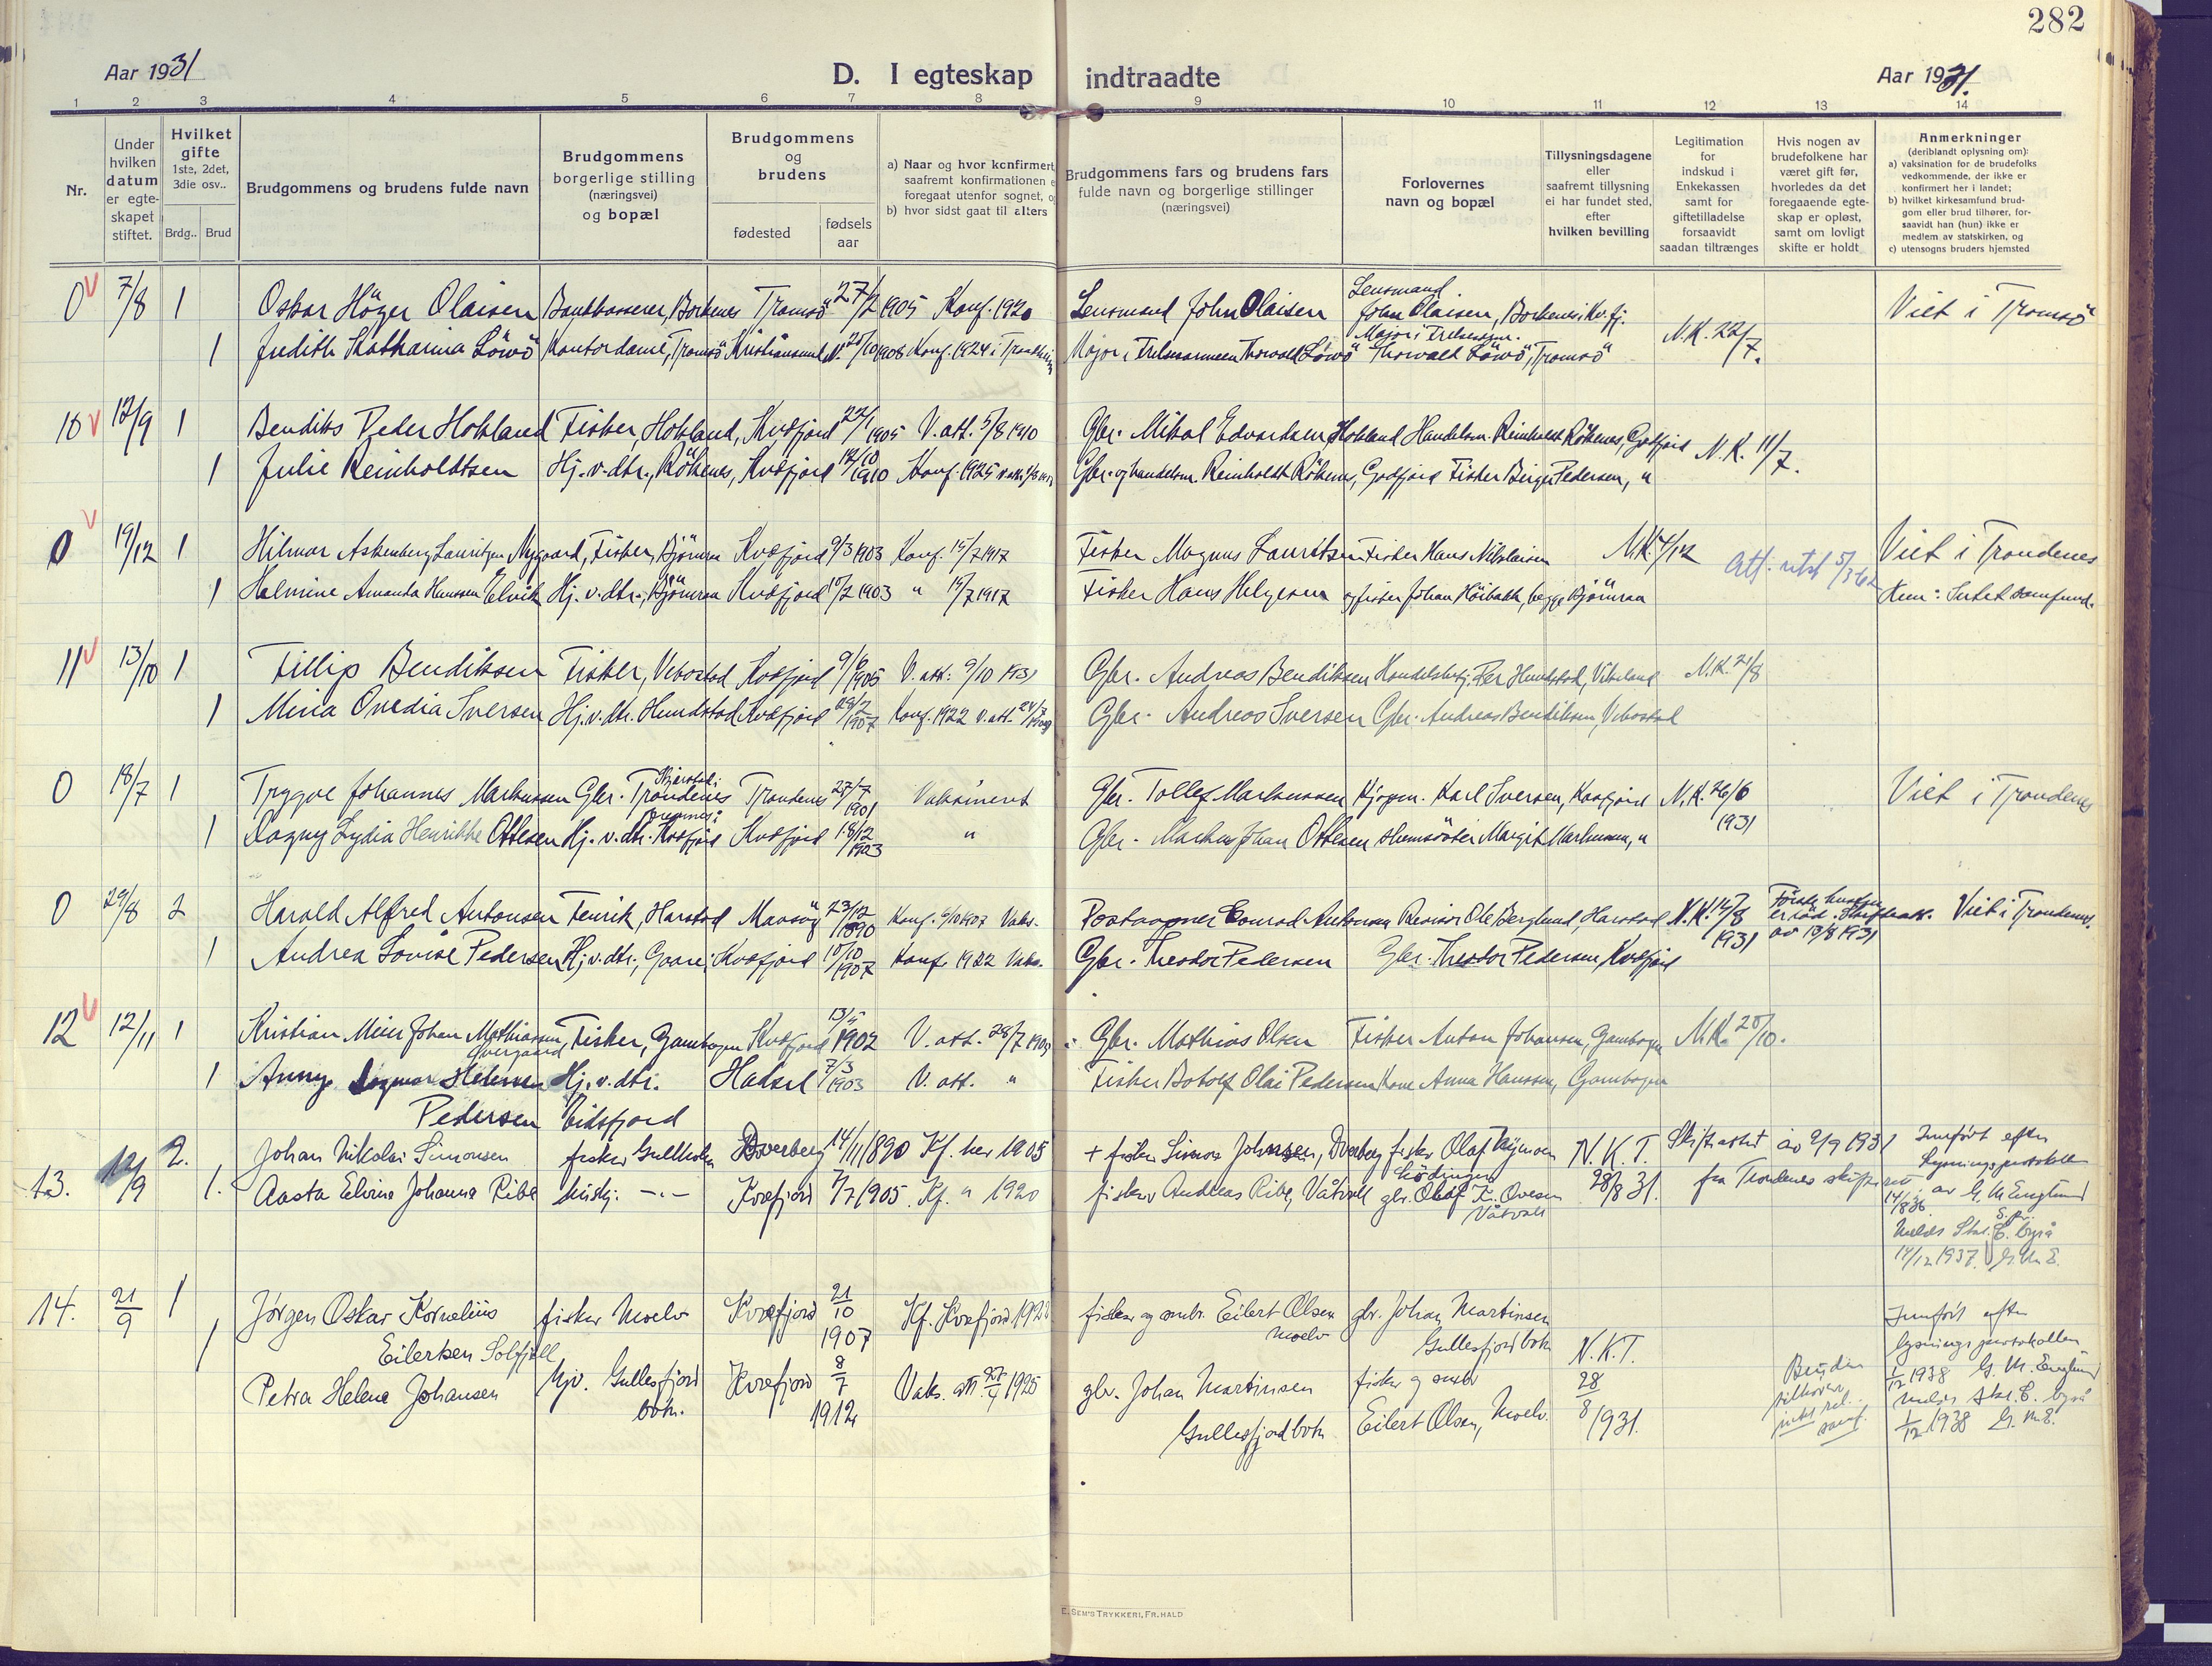 282
Aar 1931
D. I egteskap indtraadte
Aar 1931.
1 2 3 4 5 6 7 8 9 10 11 12 13 14
Nr.
Under hvilken datum er egteskapet stiftet.
Hvilket gifte 1ste, 2det, 3die osv..
Brdg.. Brud
Brudgommens og brudens fulde navn
Brudgommens borgerlige stilling (næringsvei) og bopæl
Brudgommens og brudens
fødested
fødsels aar
a) Naar og hvor konfirmert saafremt konfirmationen foregaat utenfor sognet,
b) hvor sidst gaat til alters
Brudgommens fars og brudens fars fulde navn og borgerlige stillinger (næringsvei)
Forlovernes navn og bopæl
Tillysningsdagene eller saafremt tillysning ei har fundet sted, efter hvilken bevilling
Legitimation for indskud i Enkekassen samt for giftetilladelse forsaavidt saadan tiltrænges
Hvis nogen av brudefolkene har været gift før, hvorledes da det foregaaende egteskap er opløst, samt om lovligt skifte er holdt
Anmerkninger (deriblandt oplysning om):
a) vaksination for de brudefolks vedkommende, der ikke er konfirmert her i landet;
b) hvilket kirkesamfund brudgom eller brud tilhører, forsaavidt han (hun) ikke er medlem av statskirken, og
c) utensogns bruders hjemsted
0 7/8 1 Oskar Höger Olaisen Bankkasserer, Borkenes Tromsö 27/2 1905 Konf. 1920 Lensmand John Olaisen Lensmand John Olaisen, Borkenes i Kv.fj. Viet i Tromsö
1 Judith Katharina Löwö Kontordame, Tromsö Kristiansund N. 1908 Konf. 1924 i Major i Frelsesarmeen Thorvald Löwö Major i Thorvald Löwö, Tromsö N.K. 22/7.
10 12/9 1 Bendiks Peder Hokland Fisker, Hokland, Kvæfjord 22/1 1905 V. att. 5/8 1910 Gbr. Mikal Edvardsen Hokland Handelsm. Reinholdt Rökenes, Godfjord N.K. 11/7.
1 Julie Reinholdtsen Hj. v. dtr., Rökenes, Kvæfjord 12/10 1910 Konf. 1925 Gbr. og handelsm. Reinholdt Rökenes, Godfjord Fisker Birger Pedersen, "
0 19/12 1 Hilmar Askenberg Lauritzen Nygaard, Fisker, Bjørnraa Kvæfjord 9/3 1903 Konf. 15/7 1917 Fisker Magnus Lauritzen Fisker Hans Nikolaisen N.K. 4/12 Att. utst. 5/3 62 Viet i Trondenes
1 Halmine Amanda Hanssen Elvik Hj. v. dtr., Bjørnraa Kvæfjord 1903 " 15/7 1917 Fisker Hans Helgesen og fisker Johan Höibakk, begge Bjørnraa Hun: Intet samfund.
11 13/10 1 Fillip Bendiksen Fisker, Vebostad Kvæfjord 9/6 1905 V. att. 9/10 1931 Gbr. Andreas Bendiksen Handelsbetj. Per Hundstad, N.K. 21/8
1 Mina Ovedia Iversen Hj. v. dtr. Hundstad Kvæfjord 28/2 1907 Konf. 1922 v. att. Gbr. Andreas Iversen Gbr. Andreas Bendiksen, Vebostad
0 18/7 1 Trygve Johannes Markussen Gbr. Trondenes Trondenes 27/7 1901 Vaksineret Gbr. Tollef Markussen Kjøpm. Karl Iversen, Kvæfjord N.K. 26/6 1931 Viet i Trondenes
1 Dagny Lydia Henrikke Ottesen Hj. v. dtr. Kvæfjord Kvæfjord 18/12 1903 " Gbr. Markus Johan Ottesen Margit Markussen, "
0 29/8 2 Harold Alfred Antonsen Fenrik, Harstad Maasöy 23/12 1890 Konf. 1907 Vaks. Postaapner Conrad Antonsen Revisor Ole Berglund, Harstad N.K. 14/8 1931 Første hustru er död. Skifteatt. av 13/8 1931 Viet i Trondenes.
1 Andrea Lovise Pedersen Hj. v. dtr., Kvæfjord 10/10 1907 Konf. 1922 Vaks. Gbr. Theodor Pedersen Gbr. Theodor Pedersen, Kvæfjord
12 12/11 1 Kristian Meier Johan Mathiassen, Fisker, Gambogen Kvæfjord 1902 V. att. 28/7 1909 Gbr. Mathias Olsen Fisker Anton Johansen, Gambogen N.K. 20/10.
1 Anny Dagmar Pedersen Hj. v. dtr. Eidsfjord Hadsel 7/3 1903 V. att. " Fisker Botolf Olai Pedersen Anna Hanssen, Gambogen
13. 12/9 2. Johan Nikolai Simonsen fisker Gullholm Dverberg 14/11 1890 Kf. her 1905 + fisker Simon Johansen, Dverberg fisker Olaf Lödingen N.K.T. 28/8 31. Skifteattest av 2/9 1931 fra Trondenes skifterett Innført efter lysningsprotokollen 14/8 36 av G. M. Englund s.pr.
1. Aasta Elvine Johanna Ribe husbj. -"- Kvæfjord 7/7 1905 Kf. " 1920 fisker Andreas Ribe, Våtvoll gbr. Olaf K. Ovesen Våtvoll
Meldt Stat. C. byrå 14/12 1937. G.M.E.
14. 21/9 1 Jörgen Oskar Kornelius Eilertsen Solfjell fisker Moelv Kvæfjord 21/10 1907 Kf. Kvæfjord fisker og smbr. Eilert Olsen Moelv gbr. Johan Martinsen Gullesfjordbotn N.K.T. 28/8 1931.
1 Petra Helene Johansen hjv. Gullesfjordbotn. Kvæfjord 8/7 1912 Vaks. att. 1925 gbr. Johan Martinsen Gullesfjordbotn fisker og smbr Eilert Olsen, Moelv. Bruden tilhører intet rel. samf.
Innført efter lysningsprotokollen 1/12 1938 G. M. Englund
meldt Stat. C. byrå 1/12 1938 G.M.E.
E. SEM'S TRYKKERI, FR.HALD